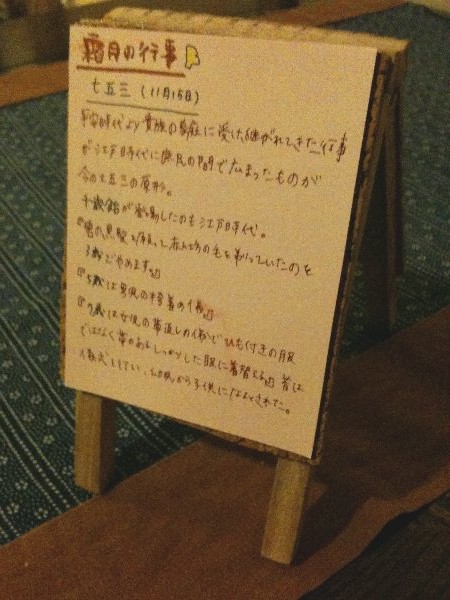 霜月の行事
七五三 (11月15日)
平安時代より貴族の家庭に受け継がれてきた行事
が江戸時代に庶民の間で広まったものが
今の七五三の原形。
千歳飴が登場したのも江戸時代。
願って赤ん坊の毛を剃っていたのを
3歳でやめます
『5歳は男児の袴着の儀』
『7歳は女児の帯直しの儀で ひも付きの服
ではなく帯のあるしっかりした服に着替える』昔は
儀式としてい から子供になるとされた。